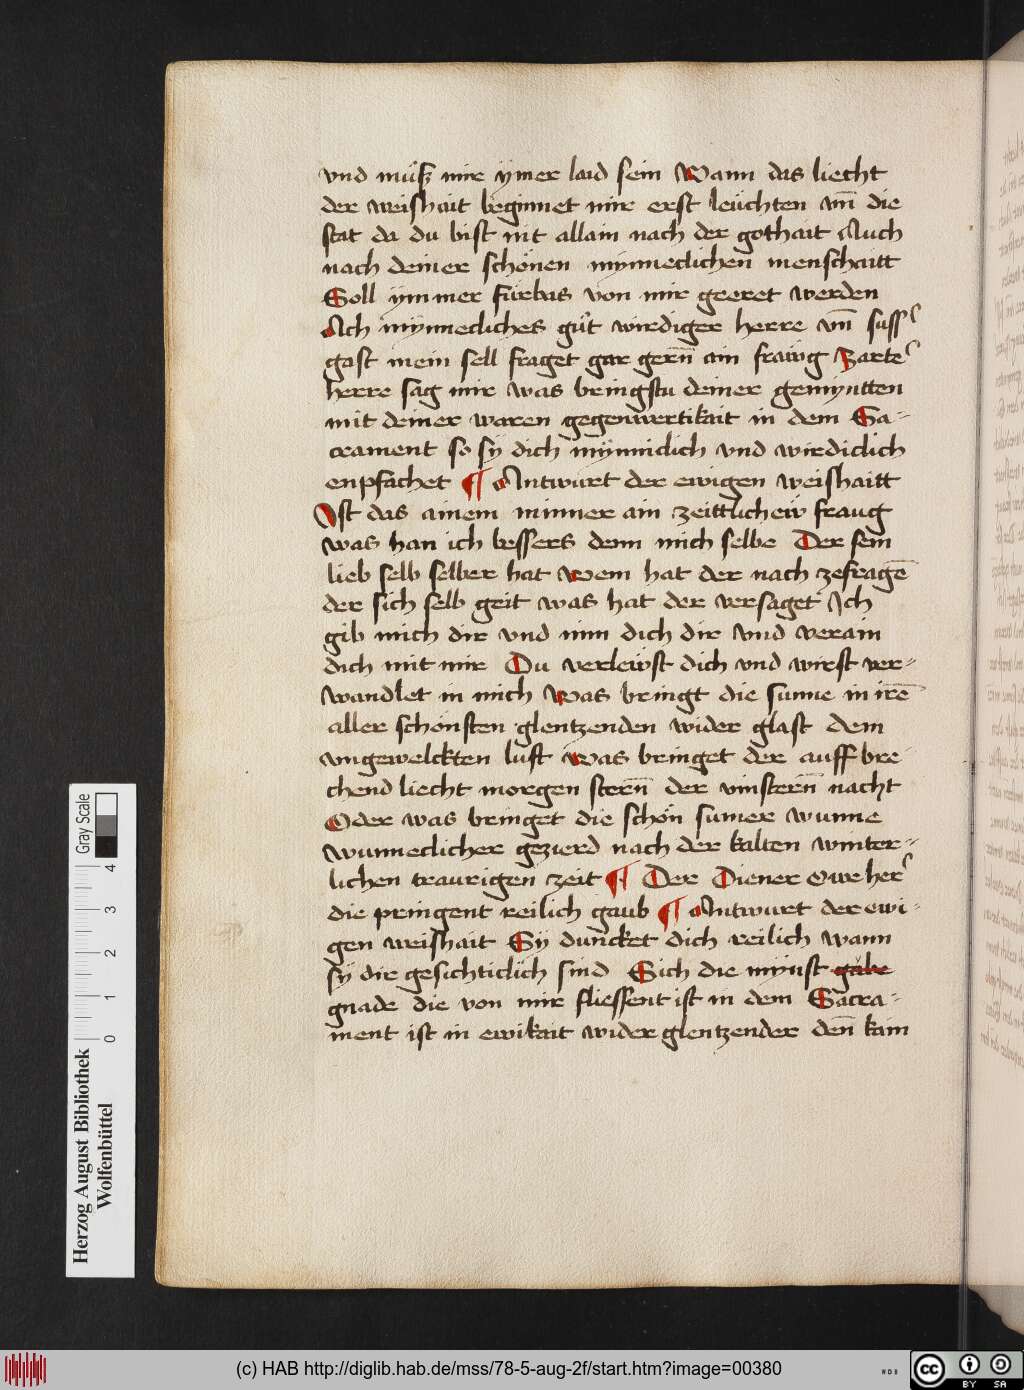 vnd müß mir ÿmer laid sein Wann das liecht
der weishait beginnet mir erst leüchten vn̄ die
stat da du bist nit allain nach der gothait Auch
nach deiner schönen mÿnneclichen menschaitt
Soll ÿmmer fürbas von mir geeret werden
Ach mÿnnecliches gůt wirdiger herre vn̄ süss͛
gast mein sell fraget gar gern̄ ain frawg Zarte͛
herre sag mir was bringstu deiner gemÿntten
mit deiner waren gegenwertikait in dem Sa-
crament so sÿ dich mÿnniclich vnd wirdiclich
enpfachet ¶ Antwurt der ewigen weishaitt
Ist das ainem minner ain zeittlichew fraug
was han ich bessers denn mich selbe Der sein
lieb selb selber hat Wem hat der nach zefragē
der sich selb geit was hat der versaget Ich
gib mich dir vnd nim dich dir vnd verain
dich mit mir Du verlewst dich vnd wirst ver-
wandlet in mich Was bringt die sunne in irē
aller schönsten glentzenden wider glast dem
vngewelckten luft Was bringet der auff bre
chend liecht morgen stern̄ der vinstern̄ nacht
Oder was bringet die schön sumer wunne
wunneclicher gezierd nach der kalten winter-
lichen traurigen zeit ¶ Der Diener owe her͛
die pringent reilich gaub ¶ Antwurt der ewi-
gen weishait Sÿ duncket dich reilich wann
sÿ dir gesichticlich sind Sich die mÿnst gäbe
gnade die von mir fliessent ist in dem Sacra-
ment ist in ewikait wider glentzender den̄ kain
Gray Scale
0 1 2 3 4
Herzog August Bibliothek
Wolfenbüttel
(c) HAB http://diglib.hab.de/mss/78-5-aug-2f/start.htm?image=00380
WDB
cc
BY SA